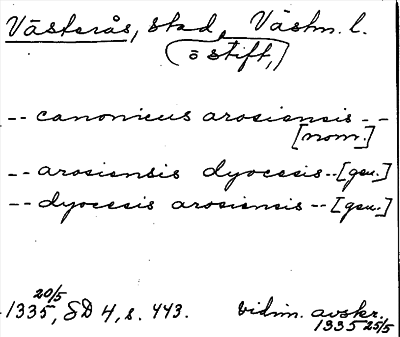 Västerås, stad, Västm. l.
(ö stift,)
-- canonicus arosiensis --
[nom.]
-- arosiensis dyocesis -- [gen.]
-- dyocesis arosiensis -- [gen.]
1335 20/5, SD 4, s. 443. vidim. avskr.
1335 25/5